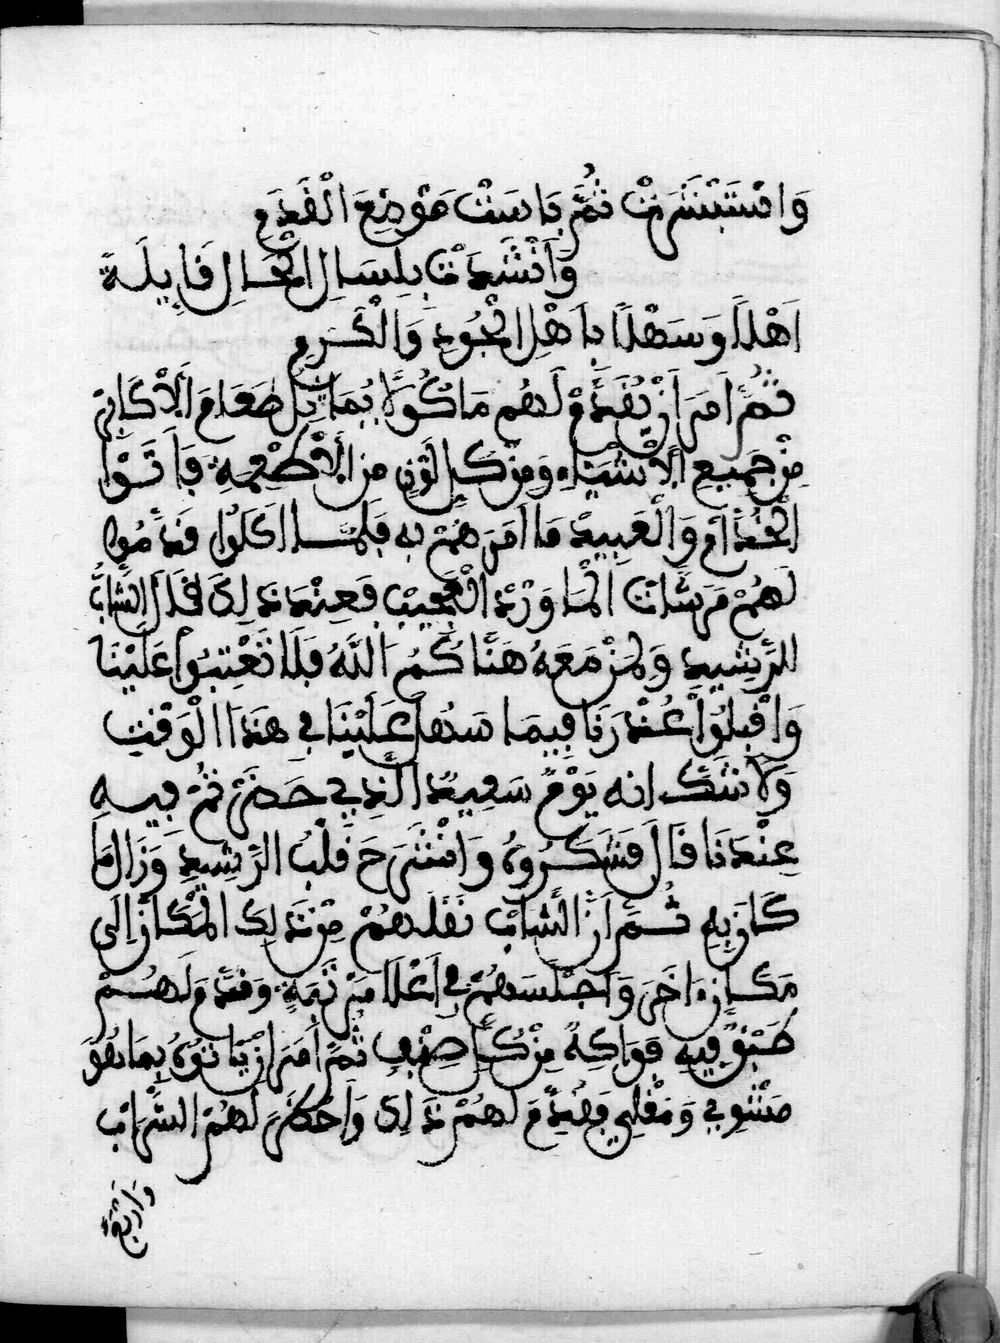 وَاسْتَبْشَرَتْ ثُمَّ بَاسَتْ مَوْضِعَ الْقَدَمِ
وَأَنْشَدَتْ بِلِسَانِ الْحَالِ قَايِلَةً
اَهْلًا وَسَهْلًا بِاَهْلِ الْجُودِ وَالْكَرَمِ
ثُمَّ اَمَرَ اَنْ يُقَدَّمْ لَهُم مَاكُولًا بِمَا مِن طَعَامِ الْأَكَابِرِ
مِنْ جَمِيعِ الْأَشْيَاءِ وَمِنْ كُلِ لَوْنٍ مِن الْأَطْعِمَةِ فَأَتَوْا
الْخُدَّامُ وَالْعَبِيدْ مَا اَمَرَهُمْ بِهِ فَلَمَّا اكَلُوا قَدَّمُوا
لَهُمْ مَرَشَّاتْ الْمَا وَرْدْ الْعَجِيبْ فَعِنْدَ ذَلِكَ قَالَ الشَّابُّ
لِلرَّشِيدِ وَلِمَنْ مَعَهُ هَنَّاكُمُ اللَّهُ فَلَا تَعْتِبُوا عَلَيْنَا
وَاقْبِلُوا عُذْرَنَا فِيمَا سَهَا عَلَيْنَا فِي هَذَا الْوَقْتِ
وَلَا شَكَّ انه يَوْمٌ سَعِيدٌ الَّذِي حَضَرْتُمْ فِيهِ
عِنْدَنَا قَالَ فَشَكَرُوهُ وَانْشَرَحَ قَلْبُ الرَّشِيدِ وَزَالَ مَا
كَانَ بِهِ ثُمَّ اَنَّ الشَّابَّ نَقَلَهُمْ مِنْ ذَلِكَ الْمَكَانْ إِلَى
مَكَانٍ اخَرَ وَاَجْلَسَهُمْ فِي اَعْلَا مَرْتَبَةٍ وَقَدَّمَ لَهُمْ
طَبَقٌ فِيهِ فَوَاكِهُ مِنْ كُلِّ صِنْفٍ ثُمَّ اَمَرَ اَنْ يَاتُوهُ بِمَا هُوَ
مَشْوِي وَمَقْلِي فَقَدَّمَ لَهُمْ ذَلِكَ وَاَحْضَرَ لَهُمُ الشَّرَابْ
وَارْبَعَةً